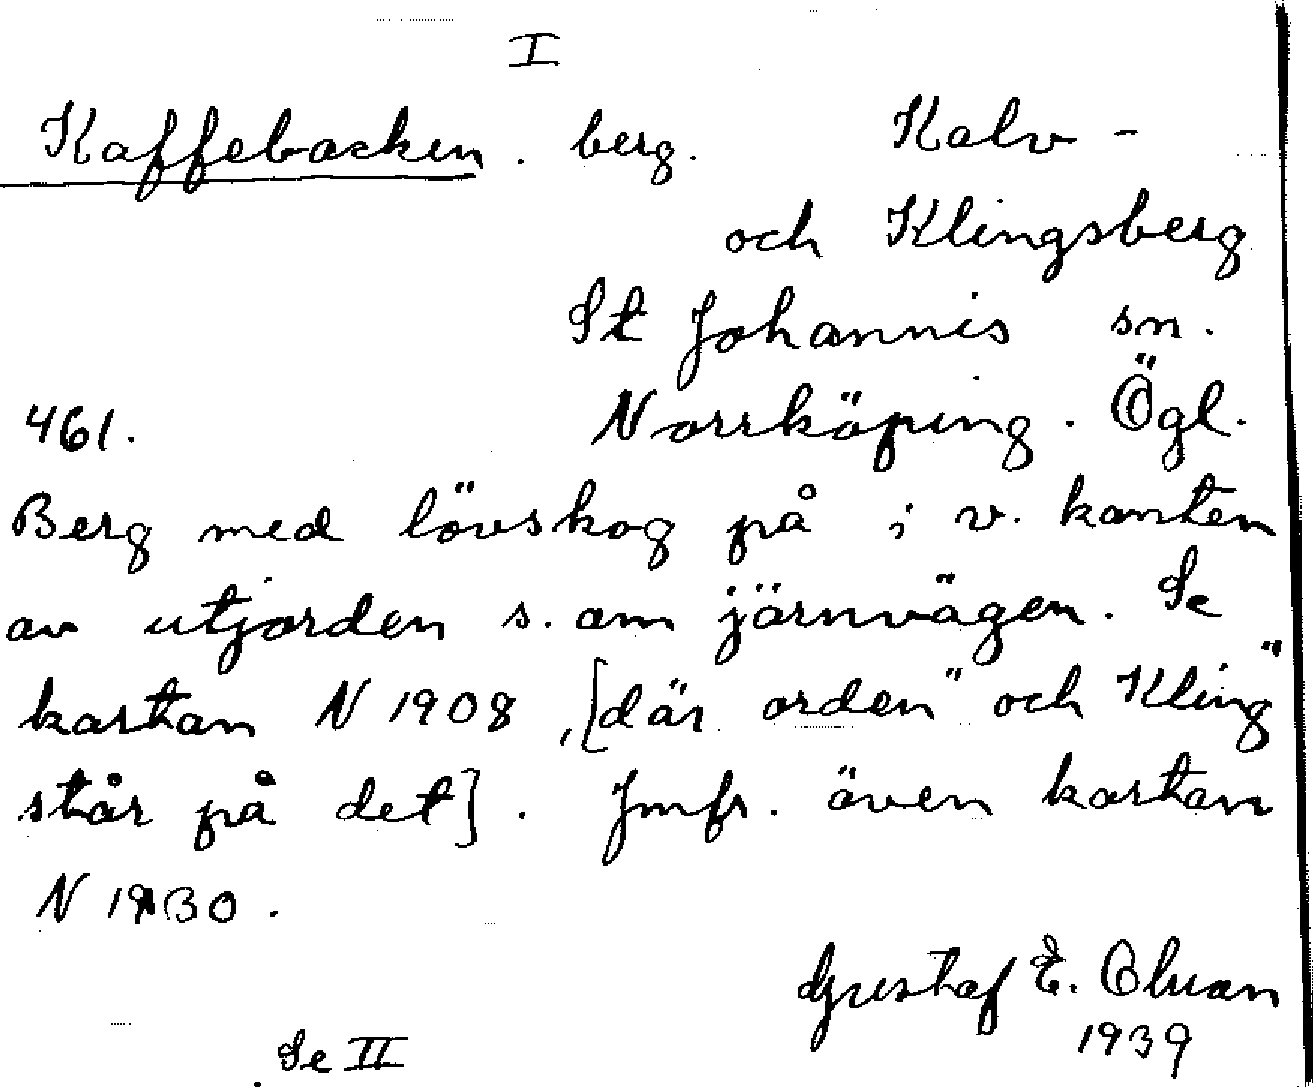 I
Kaffebacken. berg. Kalv-
och Klingsberg
St Johannis sn.
461. Norrköping. Ögl.
Berg med lövskog på i v. kanten
av utjorden s. om järnvägen. Se
kartan N 1908, [där orden "och Kling"
står på det]. Jmfr. även kartan
N 1930.
Gustaf E.
1939
Se II